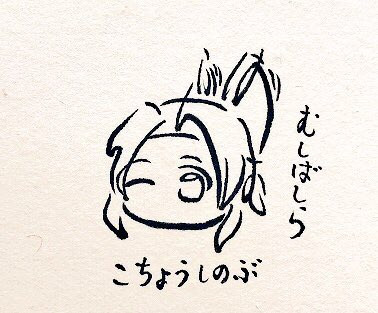 むしばしら
こちょうしのぶ